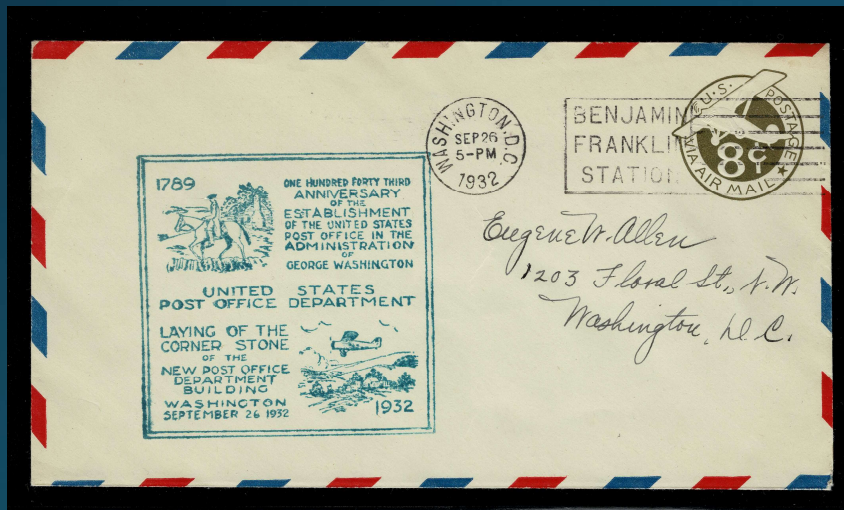 WASHINGTON, D.C.
SEP 26
5-PM
1932
BENJAMIN
FRANKLIN
STATION
U.S. POSTAGE
8c
VIA AIR MAIL
1789
ONE HUNDRED FORTY THIRD
ANNIVERSARY
OF THE
ESTABLISHMENT
OF THE UNITED STATES
POST OFFICE IN THE
ADMINISTRATION
OF
GEORGE WASHINGTON
UNITED STATES
POST OFFICE DEPARTMENT
LAYING OF THE
CORNER STONE
OF THE
NEW POST OFFICE
DEPARTMENT
BUILDING
WASHINGTON
SEPTEMBER 26 1932
1932
Eugene W. Allen
1203 Floral St., N.W.
Washington, D.C.